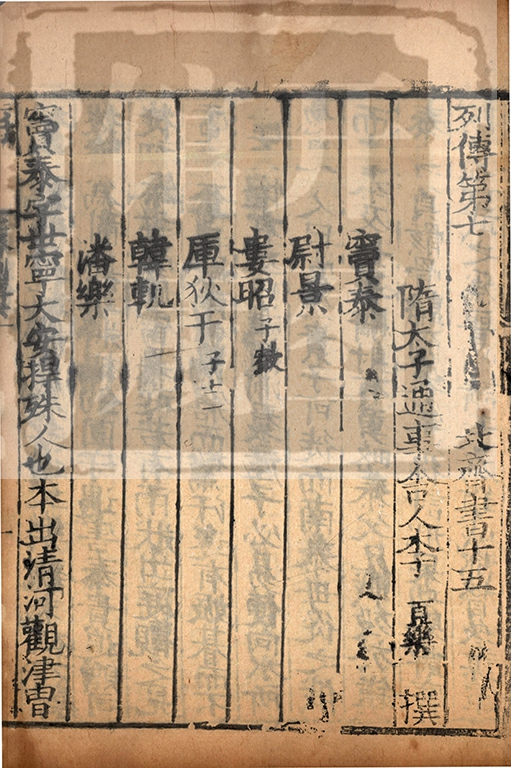 列傳第七 北齊書十五
隋太子通事舍人李 百藥 撰
竇泰
尉景
婁昭 子叡
厙狄干 子士
韓軌
潘樂
竇泰字世寧大安捍殊人也本出清河觀津曹